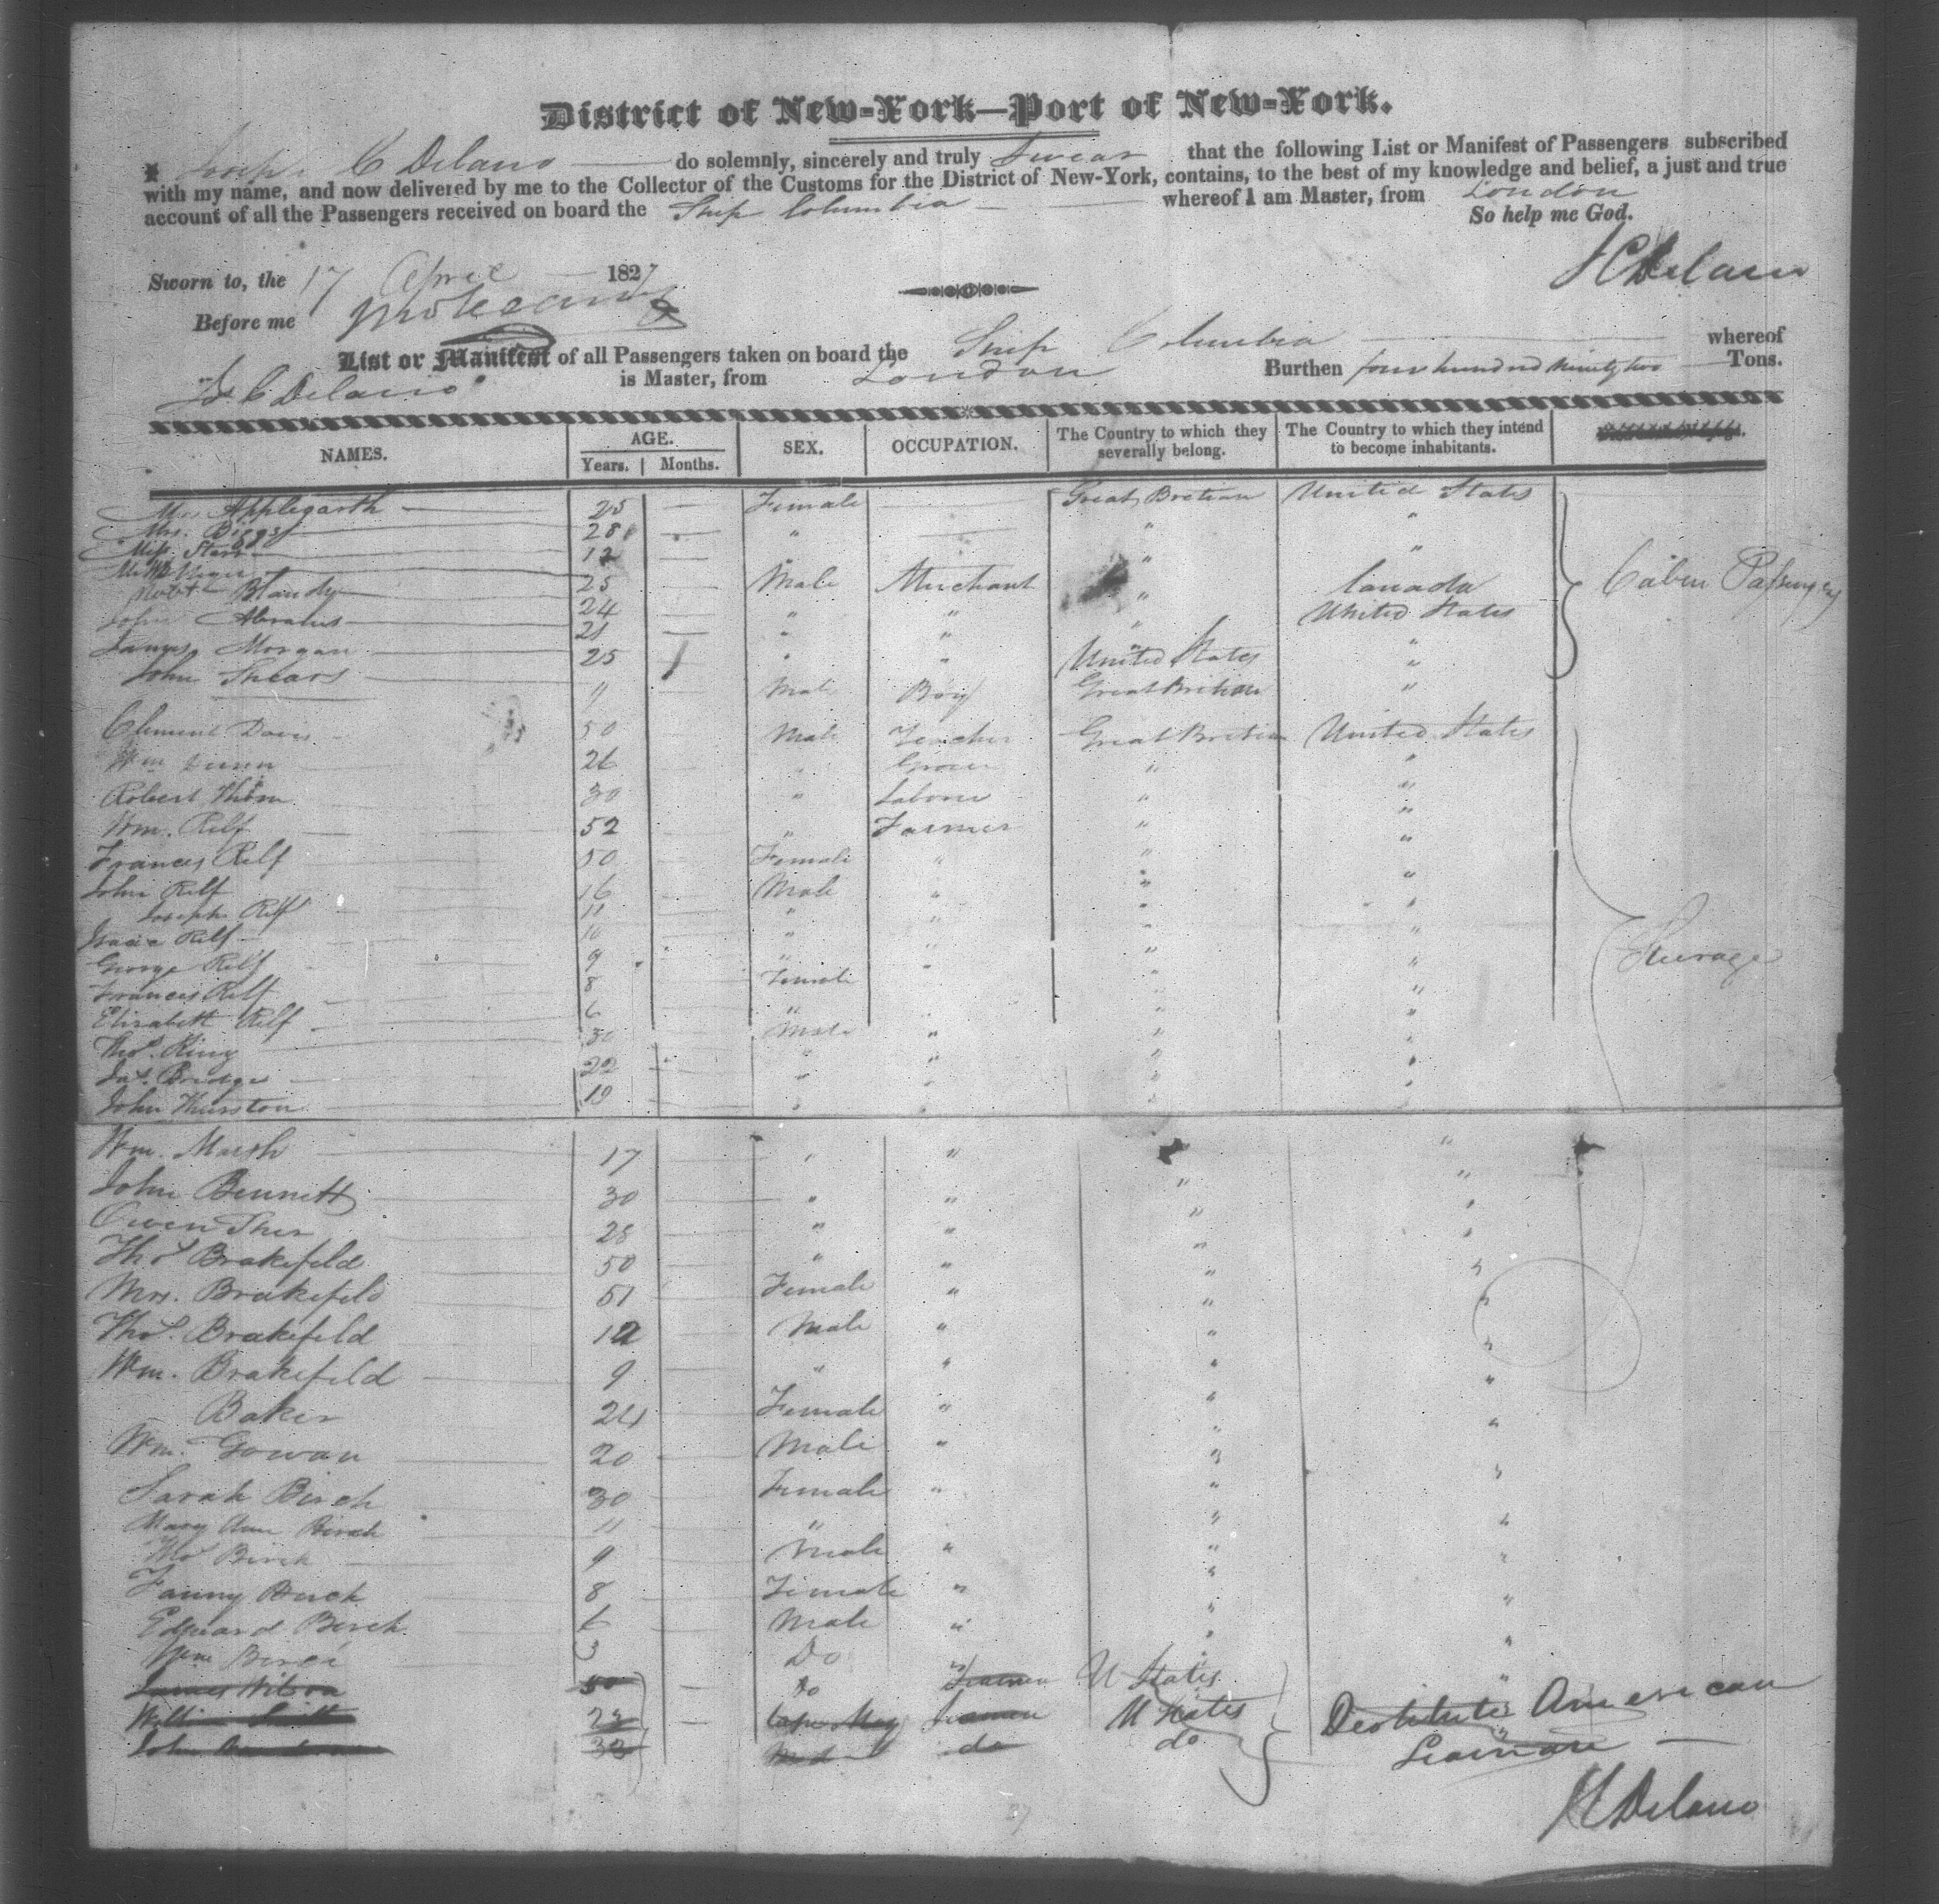 District of New-York—Port of New-York.
I Joseph C Delano do solemnly, sincerely and truly Swear that the following List or Manifest of Passengers subscribed
with my name, and now delivered by me to the Collector of the Customs for the District of New-York, contains, to the best of my knowledge and belief, a just and true
account of all the Passengers received on board the Ship Columbia whereof I am Master, from London
So help me God.
J C Delano
Sworn to, the 17 April 1827
Before me
List or Manifest of all Passengers taken on board the Ship Columbia whereof
J. C Delano is Master, from London Burthen four hundred ninety two Tons.
NAMES. AGE. Years. Months. SEX. OCCUPATION. The Country to which they severally belong. The Country to which they intend to become inhabitants.
Mrs Applegarth 25 Female Great Bretian United States
Mrs. Biggs 28 " " "
Miss. Starr 12 " "
25 Male Merchant Canada
Robt Blandy 24 " " " United States
John 21 " " "
James Morgan 25 " " United States "
John Shears 11 Male Boy Great Britian "
Cabin Passengers
Clement Davis 50 Male Teacher Great Bretian United States
Wm 26 " Grocer " "
Robert Thom 30 " Laborer " "
Wm. Relf 52 " Farmer " "
Frances Relf 50 Female " " "
John Relf 16 Male " " "
Joseph Relf 11 " " " "
Isaac Relf 10 " " "
George Relf 9 " " " "
Frances Relf 8 Female " "
Elizabeth Relf 6 " " "
Thos. King 30 Male " " "
Jas. Bridge 22 " " " "
John Thurston 19 " " " "
Steerage
Wm. Marsh 17 " " "
John Bennett 30 " " " "
Owen 28 " " " "
Thos Brakefeld 50 " " " "
Mrs. Brakefeld 51 Female " " "
Thos. Brakefeld 12 Male " " "
Wm. Brakefeld 9 " " " "
Baker 24 Female " " "
Wm. Gowan 20 Male " " "
Sarah Birch 30 Female " " "
Mary Ann Birch 11 " " "
Thos Birch 9 Male " " "
Fanny Birch 8 Female " " "
Edward Birch 6 Male " " "
Wm Birch 3 Do " "
James Wilson 50 Do Seaman U States
William Smith 22 Cape May Seaman U States Destitute American
John 33 do do Seaman
J C Delano